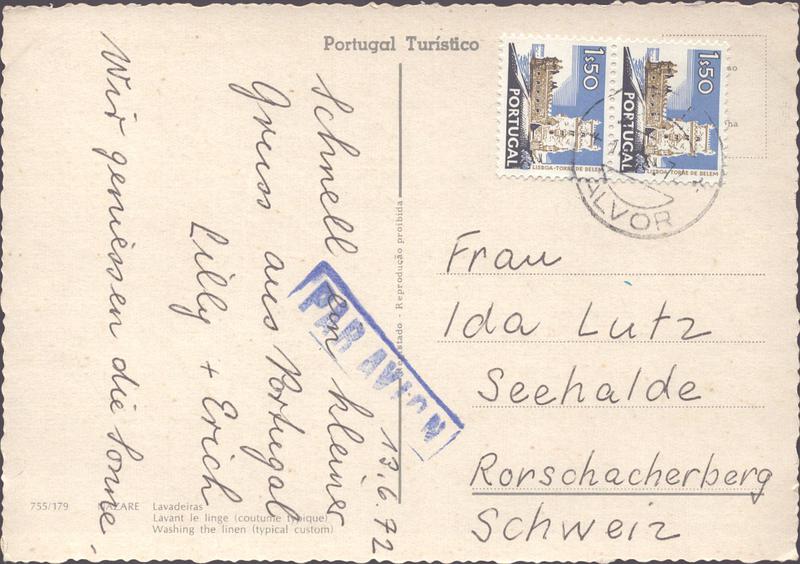 Portugal Turístico
1$50
PORTUGAL
LISBOA-TORRE DE BELEM
1$50
PORTUGAL
LISBOA-TORRE DE BELEM
ALVOR
13.6.72
Schnell ein kleiner
Gruss aus Portugal
Lilly + Erich
Wir geniessen die Sonne.
PAR AVION
Reprodução proibida
Frau
Ida Lutz
Seehalde
Rorschacherberg
Schweiz
755/179 NAZARE Lavadeiras
Lavant le linge (coutume typique)
Washing the linen (typical custom)